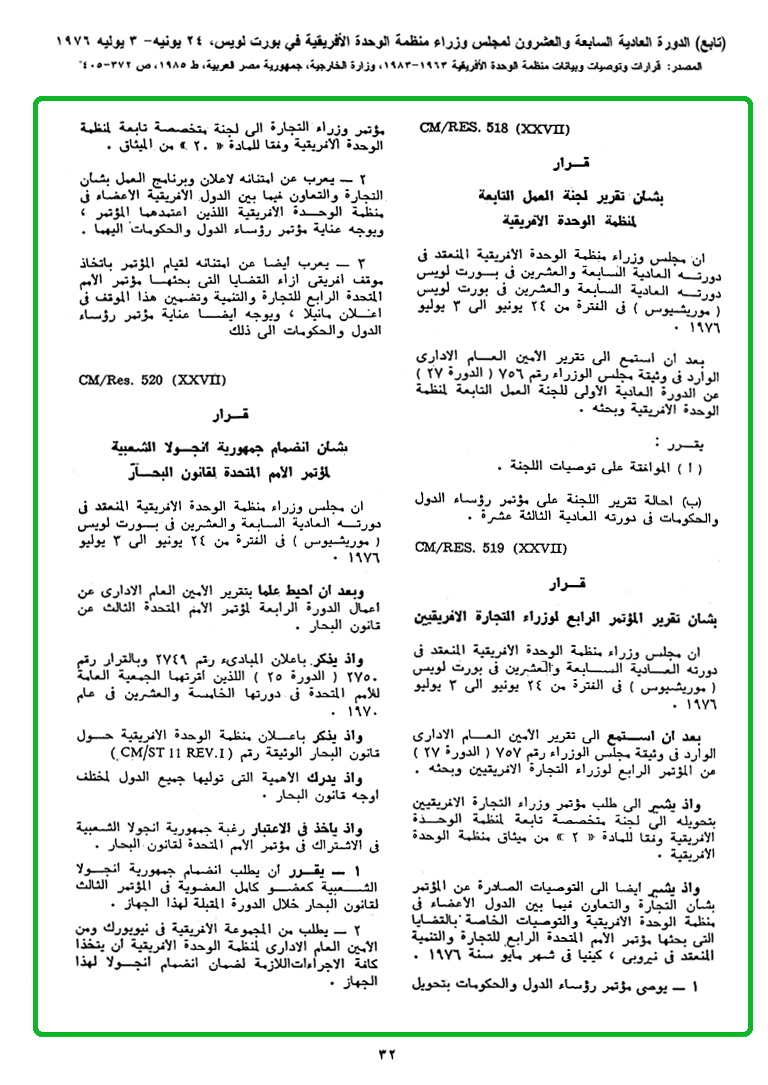 (تابع) الدورة العادية السابعة والعشرون لمجلس وزراء منظمة الوحدة الأفريقية في بورت لويس، ٢٤ يونيه- ٣ يوليه ١٩٧٦
المصدر: قرارات وتوصيات وبيانات منظمة الوحدة الأفريقية ١٩٦٣-١٩٨٣، وزارة الخارجية، جمهورية مصر العربية، ط ١٩٨٥، ص ٣٧٢-٤٠٥
CM/RES. 518 (XXVII)
قـــرار
بشأن تقرير لجنة العمل التابعة
لمنظمة الوحدة الافريقية
ان مجلس وزراء منظمة الوحدة الافريقية المنعقد فى
دورتــه العادية السابعة والعشرين فى بـــورت لويس
دورتــه العادية السابعة والعشرين فى بورت لويس
( موريشيوس ) فى الفترة من ٢٤ يونيو الى ٣ يوليو
١٩٧٦ ٠
بعد ان استمع الى تقرير الأمين العــام الادارى
الوارد فى وثيقة مجلس الوزراء رقم ٧٥٦ ( الدورة ٢٧ )
عن الدورة العادية الاولى للجنة العمل التابعة لمنظمة
الوحدة الافريقية وبحثه ٠
يقــرر :
( أ ) الموافقة على توصيات اللجنة ٠
(ب) احالة تقرير اللجنة على مؤتمر رؤساء الدول
والحكومات فى دورته العادية الثالثة عشرة ٠
CM/RES. 519 (XXVII)
قـــرار
بشأن تقرير المؤتمر الرابع لوزراء التجارة الافريقيين
ان مجلس وزراء منظمة الوحدة الافريقية المنعقد فى
دورته العــادية الســـابعة والعشرين فى بورت لويس
( موريشيوس ) فى الفترة من ٢٤ يونيو الى ٣ يوليو
١٩٧٦ ٠
بعد ان اســـتمع الى تقرير الأمين العــام الادارى
الوارد فى وثيقة مجلس الوزراء رقم ٧٥٧ ( الدورة ٢٧ )
عن المؤتمر الرابع لوزراء التجارة الافريقيين وبحثه ٠
واذ يشير الى طلب مؤتمر وزراء التجارة الافريقيين
بتحويله الى لجنة متخصصة تابعة لمنظمة الوحـــدة
الافريقية وفقا للمادة « ٢ » من ميثاق منظمة الوحدة
الافريقية ٠
واذ يشير ايضا الى التوصيات الصادرة عن المؤتمر
بشأن التجارة والتعاون فيما بين الدول الأعضاء فى
منظمة الوحدة الافريقية والتوصيات الخاصة بالقضايا
التى بحثها مؤتمر الأمم المتحدة الرابع للتجارة والتنمية
المنعقد فى نيروبى ، كينيا فى شهر مايو سنة ١٩٧٦ ٠
١ — يوصى مؤتمر رؤساء الدول والحكومات بتحويل
مؤتمر وزراء التجارة الى لجنة متخصصة تابعة لمنظمة
الوحدة الافريقية وفقا للمادة « ٢٠ » من الميثاق ٠
٢ — يعرب عن امتنانه لاعلان وبرنامج العمل بشأن
التجارة والتعاون فيما بين الدول الافريقية الأعضاء فى
منظمة الوحــدة الافريقية اللذين اعتمدهما المؤتمر ،
ويوجه عناية مؤتمر رؤساء الدول والحكومات اليهما ٠
٣ — يعرب ايضا عن امتنانه لقيام المؤتمر باتخاذ
موقف افريقى ازاء القضايا التى بحثهــا مؤتمر الأمم
المتحدة الرابع للتجارة والتنمية وتضمين هذا الموقف فى
اعــلان مانيلا ، ويوجه ايضــا عناية مؤتمر رؤساء
الدول والحكومات الى ذلك
CM/Res. 520 (XXVII)
قـــرار
بشأن انضمام جمهورية انجــولا الشعبية
لمؤتمر الأمم المتحدة لقانون البحــار
ان مجلس وزراء منظمة الوحدة الافريقية المنعقد فى
دورتــه العادية السابعة والعشرين فى بـــورت لويس
( موريشيوس ) فى الفترة من ٢٤ يونيو الى ٣ يوليو
١٩٧٦ ٠
وبعد ان احيط علما بتقرير الأمين العام الادارى عن
اعمال الدورة الرابعة لمؤتمر الأمم المتحدة الثالث عن
قانون البحار ٠
واذ يذكر باعلان المبادىء رقم ٢٧٤٩ وبالقرار رقم
٢٧٥٠ ( الدورة ٢٥ ) اللذين أقرتهما الجمعية العامة
للأمم المتحدة فى دورتها الخامسة والعشرين فى عام
١٩٧٠ ٠
واذ يذكر باعــلان منظمة الوحدة الافريقية حــول
قانون البحار الوثيقة رقم ( CM/ST 11 REV.I )
واذ يدرك الاهمية التى توليها جميع الدول لمختلف
اوجه قانون البحار ٠
واذ ياخذ فى الاعتبار رغبة جمهورية انجولا الشعبية
فى الاشتراك فى مؤتمر الأمم المتحدة لقانون البحار ٠
١ — يقــرر أن يطلب انضمام جمهورية انجــولا
الشـــعبية كعضــو كامل العضوية فى المؤتمر الثالث
لقانون البحار خلال الدورة المقبلة لهذا الجهاز ٠
٢ — يطلب من المجموعة الافريقية فى نيويورك ومن
الأمين العام الادارى لمنظمة الوحدة الافريقية أن يتخذا
كافة الاجراءات اللازمة لضمان انضمام انجــولا لهذا
الجهاز ٠
٣٢